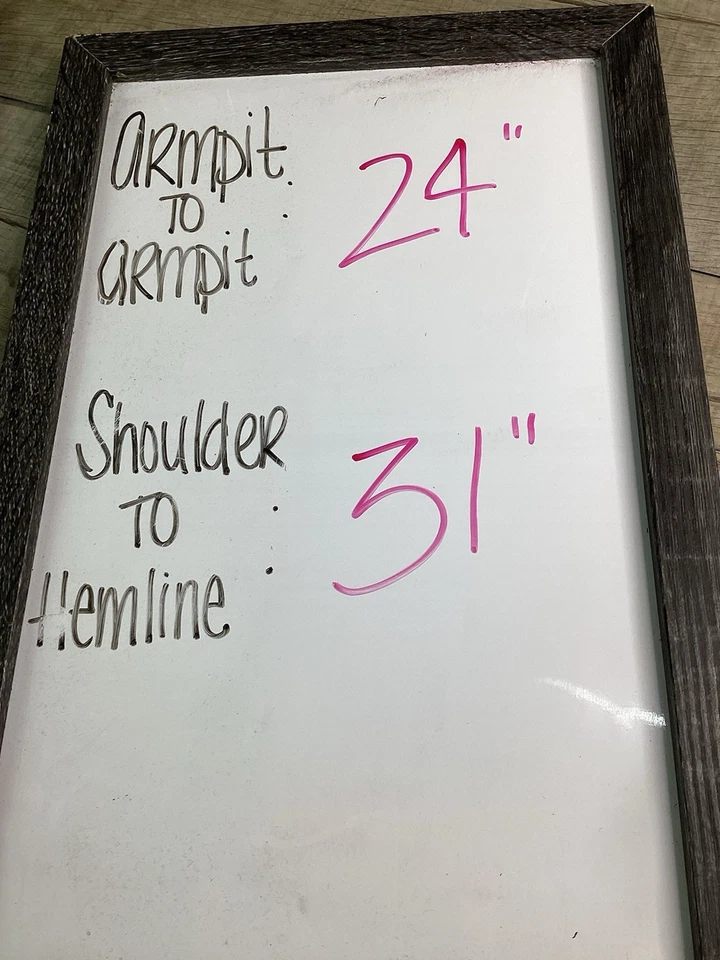 ARMpit
TO : 24"
ARMpit
Shoulder
TO : 31"
Hemline